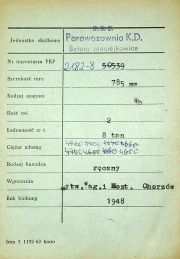 P.K.P.
Jednostka służbowa Parowozownia K.D.
Bytom Maciejkowice
Nr inwentarza PKP 2182-8 50539
Szerokość toru 785 mm
Rodzaj wagonu Wh
Ilość osi 2
Ładowność w t. 8 ton
Ciężar własny
Rodzaj hamulca ręczny
Wytwórnia "Wtw.Wag.i Most. Chorzów
Rok budowy 1948